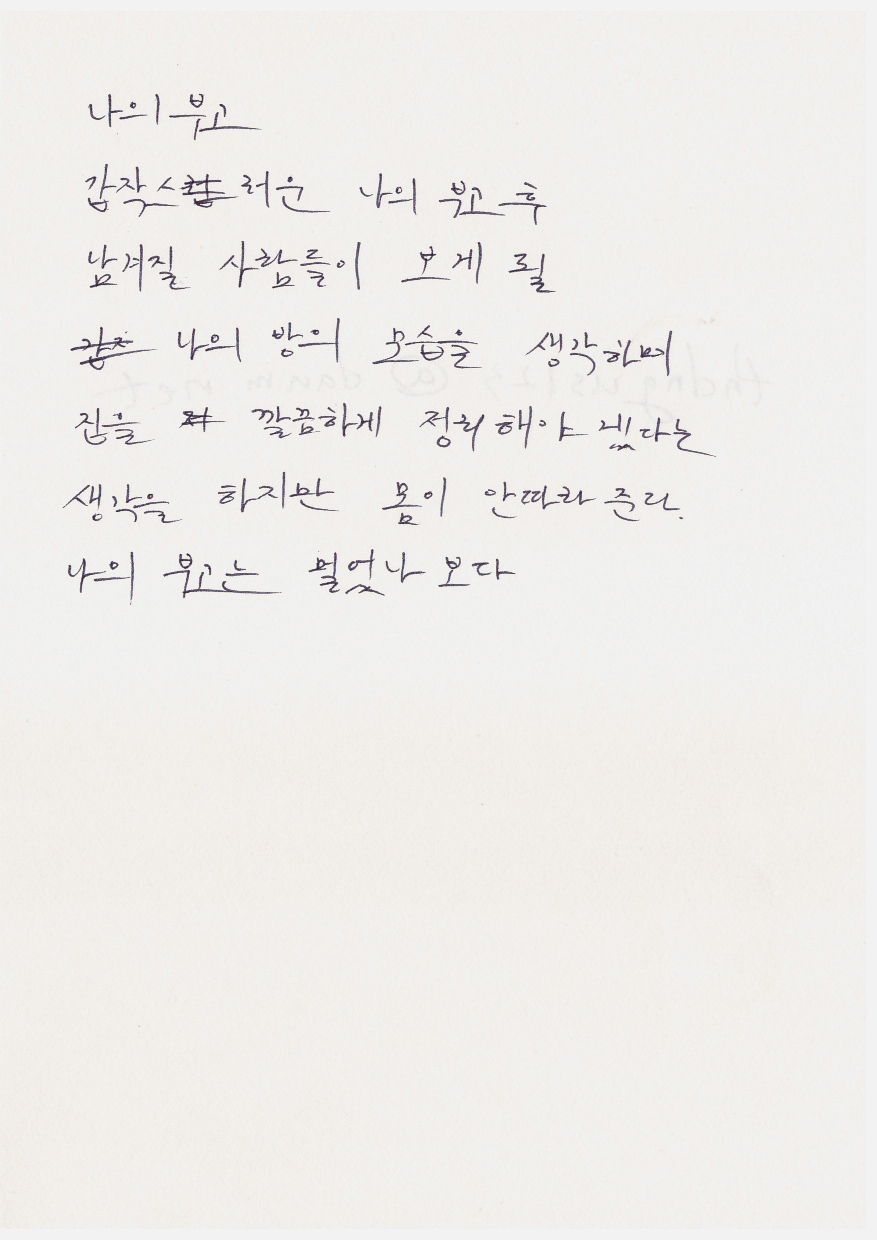 나의 부고
갑작스러운 나의 부고 후
남겨질 사람들이 보게 될
나의 방의 모습을 생각하며
집을 깔끔하게 정리해야 겠다는
생각을 하지만 몸이 안따라 준다.
나의 부고는 멀었나 보다